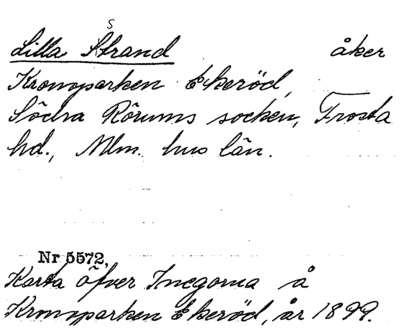 s
Lilla Strand åker
Kronoparken Ekeröd,
Södra Rörums socken, Frosta
hd., Mlm. hus län.
Nr 5572,
Karta öfver Inegorna å
Kronoparken Ekeröd, år 1899.